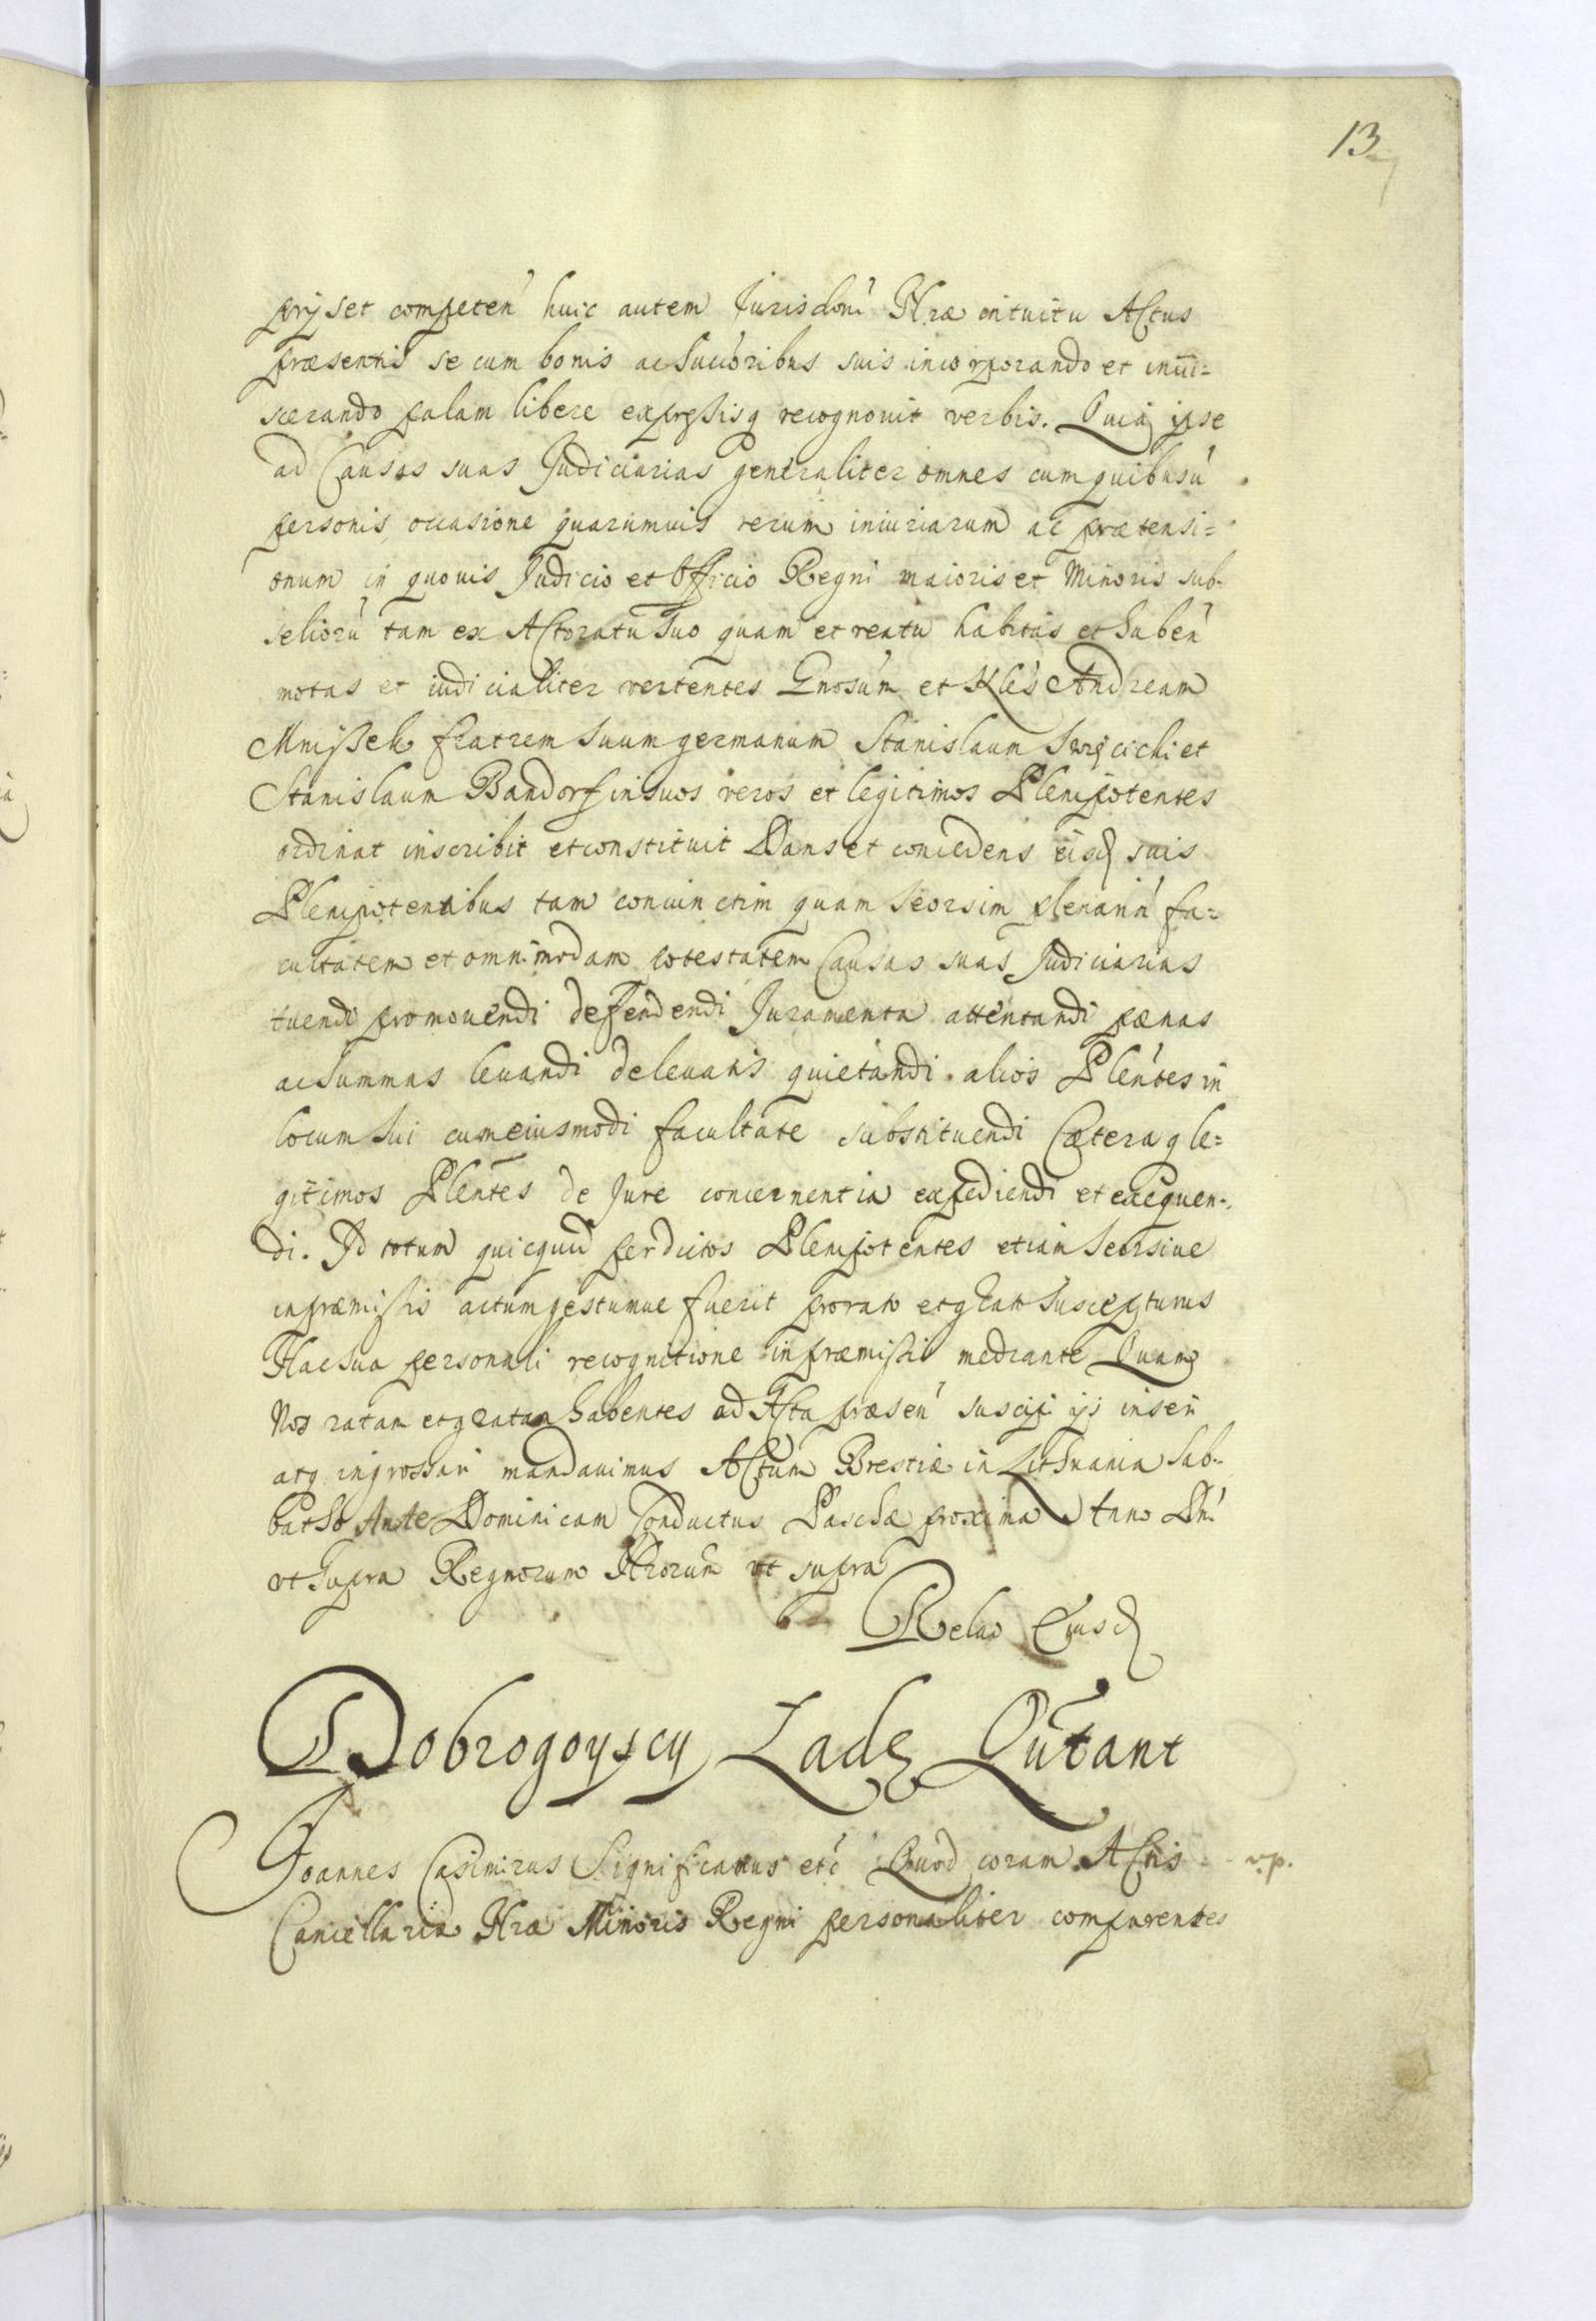 13
prijs et competen huic autem Jurisdoni Nræ intuitu Actus
præsentis se cum bonis ac Succoribus suis incorporando et invi=
scerando palam libere expressisq recognovit verbis. Quia ipse
ad Causas suas Judiciarias generaliter omnes cum quibusu
personis occasione quarumvis rerum iniuriarum ac prætensi=
onum in quovis Judicio et Officio Regni maioris et Minoris sub-
seliorū tam ex Actoratu Suo quam et reatu habitas et haben
motas et iudicialiter vertentes Gnosum et Nles Andream
Mniszek fratrem Suum germanum Stanislaum et
Stanislaum Bandorf in Suos veros et legitimos Plenipotentes
ordinat inscribit et constituit Dans et concedens eisd suis
Plenipotentibus tam coniunctim quam Seorsim plenariā fa=
cultatem et omnimodam potestatem Causas suas Judiciarias
tuendi promovendi defendendi Juramenta attentandi pœnas
ac Summas levandi de levatis quietandi alios Plentes in
locum Sui cum eiusmodi facultate substituendi Cæteraq le=
gitimos Plentes de Jure concernentia expediendi et exequen-
di. Id totum quicquid per dictos Plenipotentes etiam Seorsive
in præmissis actum gestumve fuerit pro rato et grato Suscepturus
Hac Sua personali recognitione in præmissis mediante Quam
Nos ratam et gratam habentes ad Acta præsen suscipi ijs inseri
atq ingrossari mandavimus Actum Brestiæ in Lithuania Sab-
batho Ante Dominicam Conductus Paschæ proxima Anno Dni
ut Supra Regnorum Nrorum ut supra
Relao Eiusd
Dobrogoyscy Lade Quietant
Joannes Casimirus Significamus etc Quod coram Actis v.p.
Cancellariæ Nræ Minoris Regni personaliter comparentes